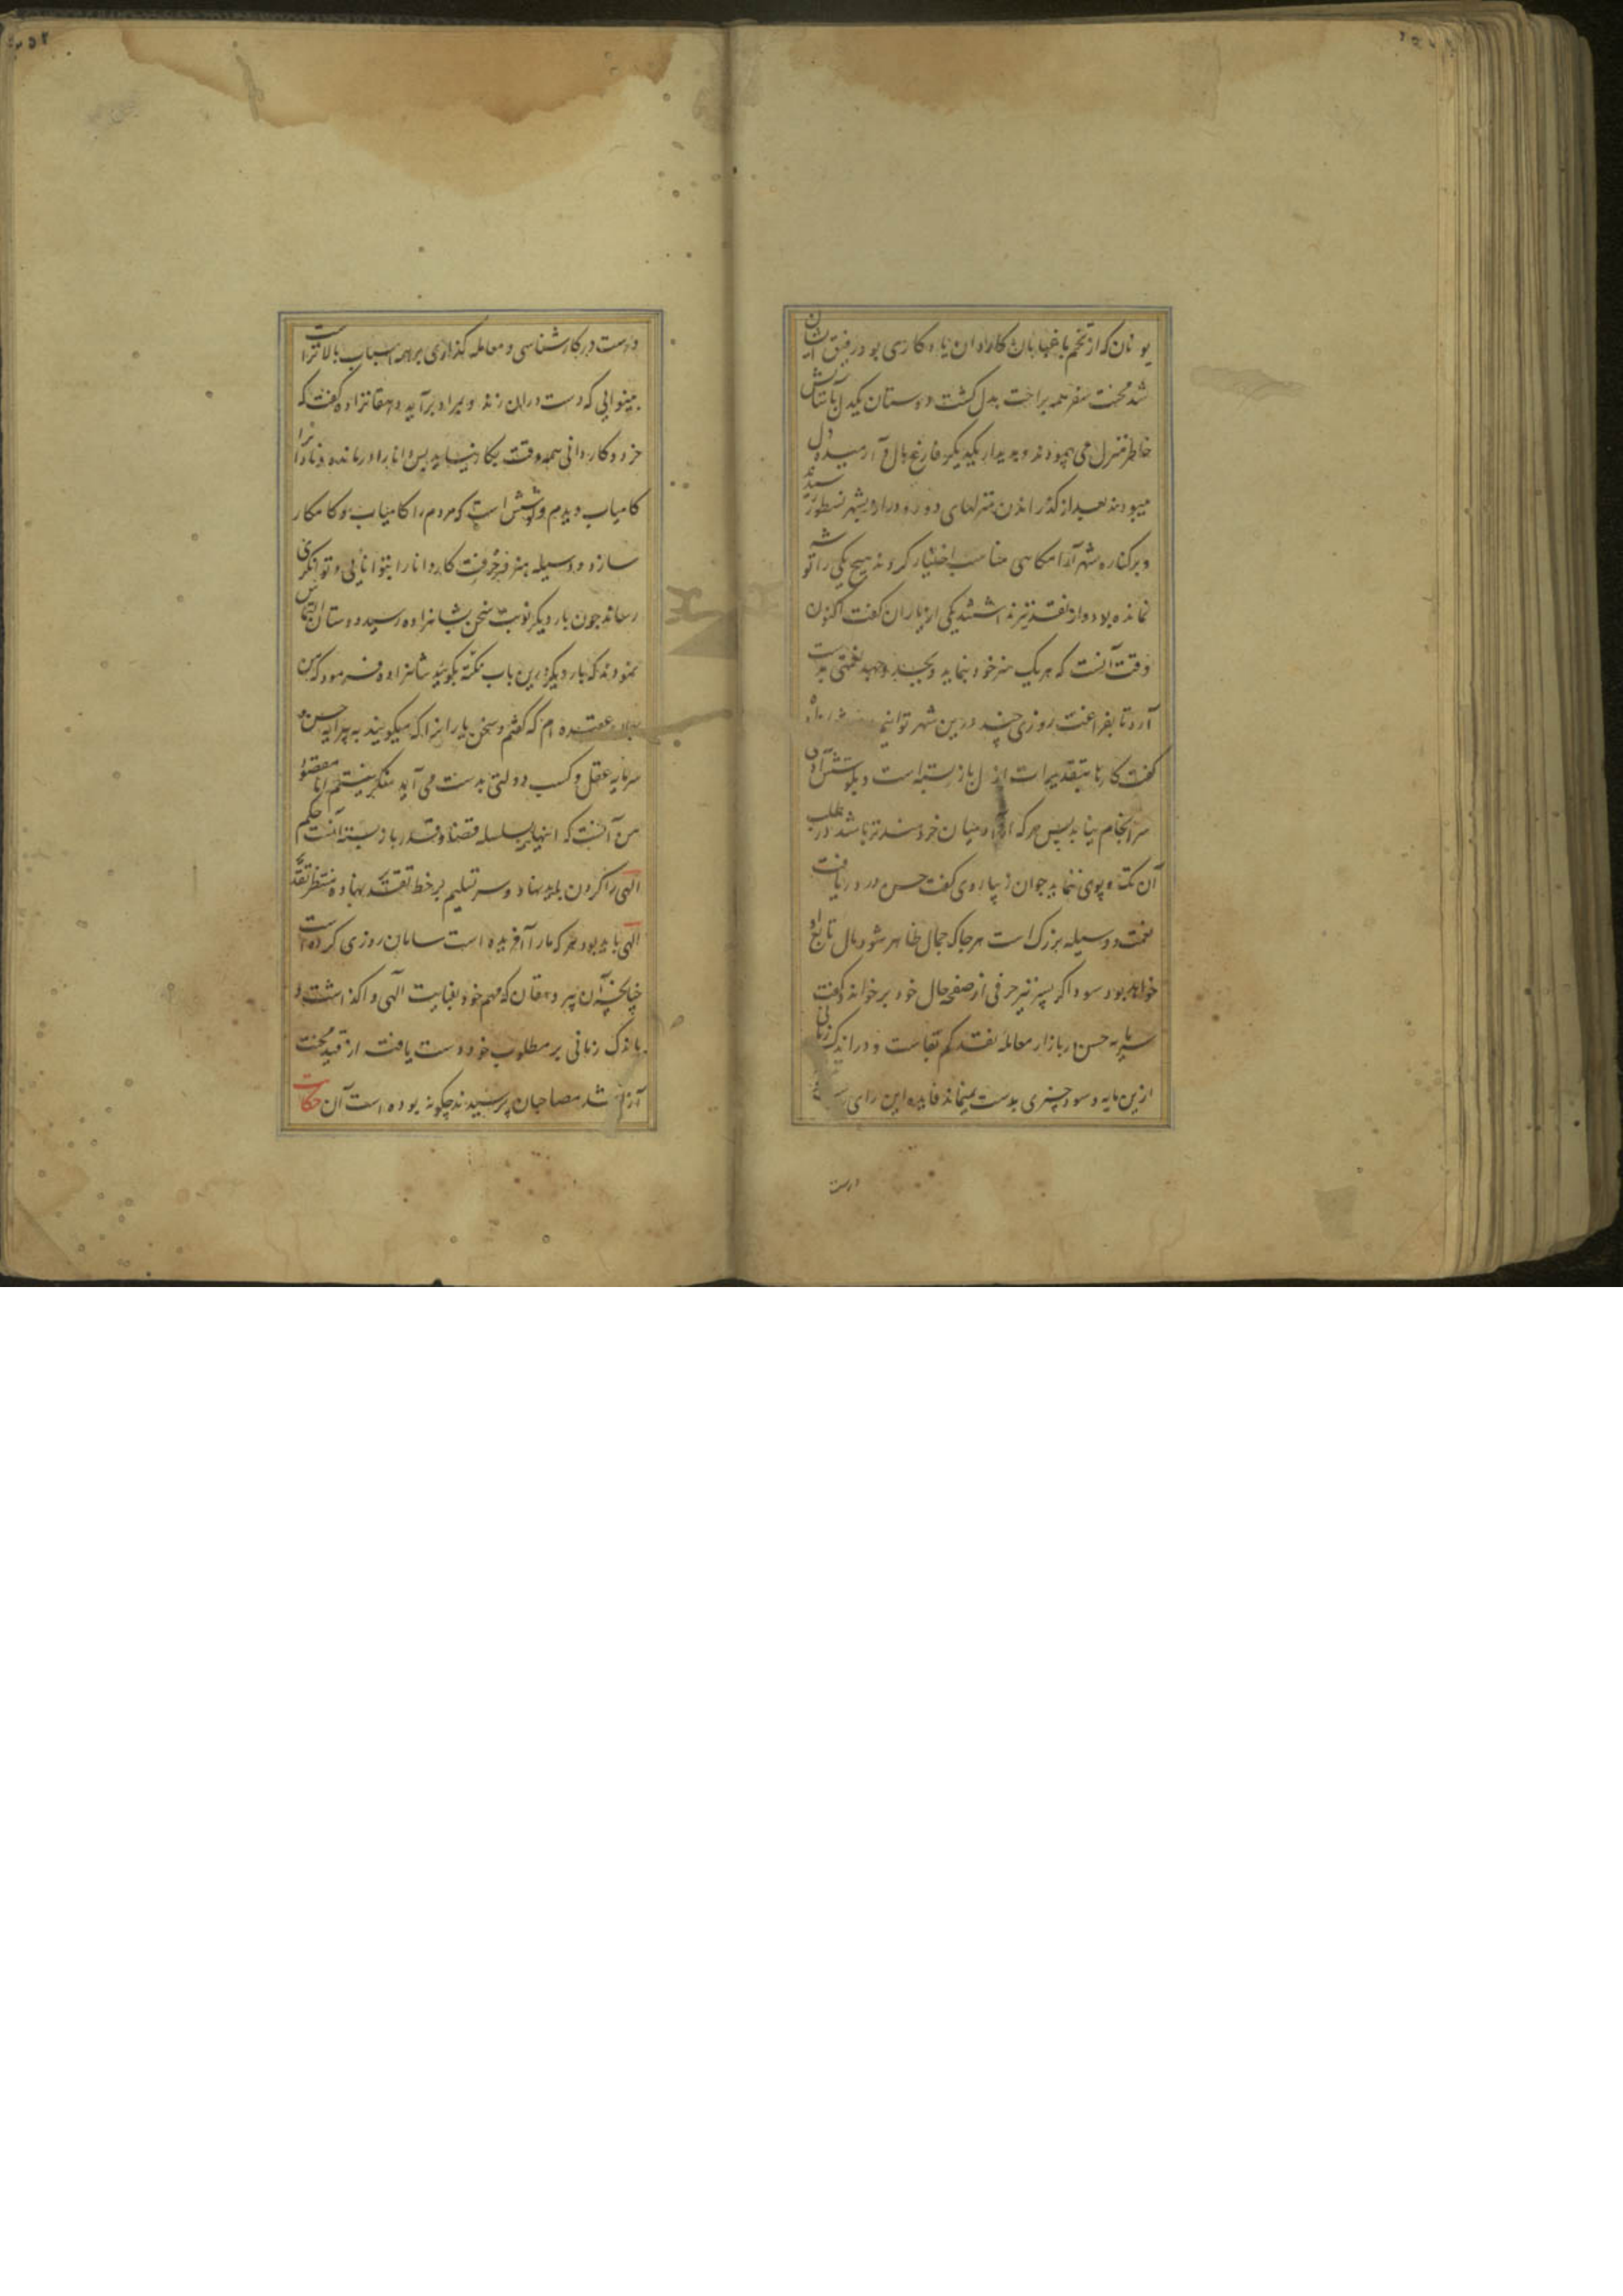 یونان که از تخم باغبانان کاردان یادکاری بود رفیق ایشان
شد محنت سفر همه براحت بدل کشت دوستان یکدل باسایش
خاطر منزل می پیمودند و بدیدار یکدیکر فارغ بال و آرمیده دل
میبودند بعد از کذراندن منزلهای دور و دراز بشهر نسطور رسیدند
و بر کناره شهر آرامکاهی مناسب اختیار کردند هیچ یکی را توشه
نمانده بود و از نقد نیز نداشتند یکی از یاران کفت اکنون
وقت آنست که هر یک هنر خود بنماید و بجد و جهد نعمتی بدست
آرد تا بفراغت روزی چند درین شهر توانیم
کفت کارها بتقدیرات ازل باز بسته است و بکوشش آدمی
سرانجام نیابد پس هر که از میان خردمندتر باشد در طلب
آن تک و پوی ننماید جوان زیباروی کفت حسن در دریافت
نعمت وسیله بزرک است هر جا که جمال ظاهر شود مال تابع او
خواهد بود سوداکر پسر نیز حرفی از صفحه حال خود برخواند و کفت
سرمایه حسن در بازار معامله نقد کم بقاست و در اندک زمانی
ازین مایه و سود چیزی بدست نمیماند فایده این رای
درست
درست در کارشناسی و معامله کذاری بر همه اسباب بالاتر است
بینوایی که دست دران زند و بمراد برآید دهقانزاده کفت که
خرد و کاردانی همه وقت بکار نیاید پس دانا را درمانده و نادان را
کامیاب دیدم و کوشش است که مردم را کامیاب و کامکار
سازد و وسیله هنر و حرفت کاردانان را بتوانایی و توانکری
رساند چون بار دیکر نوبت سخن بشاهزاده رسید دوستان التماس
نمودند که بار دیکر درین باب نکته بکویید شاهزاده فرمود که من
بدان عقیده ام که کفتم و سخن یاران را که میکویند به پیرایه حسن و
سرمایه عقل و کسب دولتی بدست می آید منکر نیستم اما مقصود
من آنست که اینها بسلسله قضا و قدر باز بسته است حکم
الهی را کردن بباید نهاد و سر تسلیم بر خط تقدیر بنهاده منتظر تفقد
الهی باید بود هر که ما را آفریده است سامان روزی کرده است
چنانچه آن پیر دهقان که مهم خود بعنایت الهی واکذاشت و
باندک زمانی بر مطلوب خود دست یافت از قید محنت
آزاد شد مصاحبان پرسیدند چکونه بوده است آن حکایت